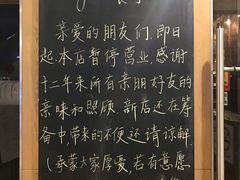 亲爱的朋友们,即日
起本店暂停营业,感谢
十二年来所有亲朋好友的
亲睐和照顾,新店还在筹
备中,带来的不便还请谅解
(承蒙大家厚爱,若有意愿